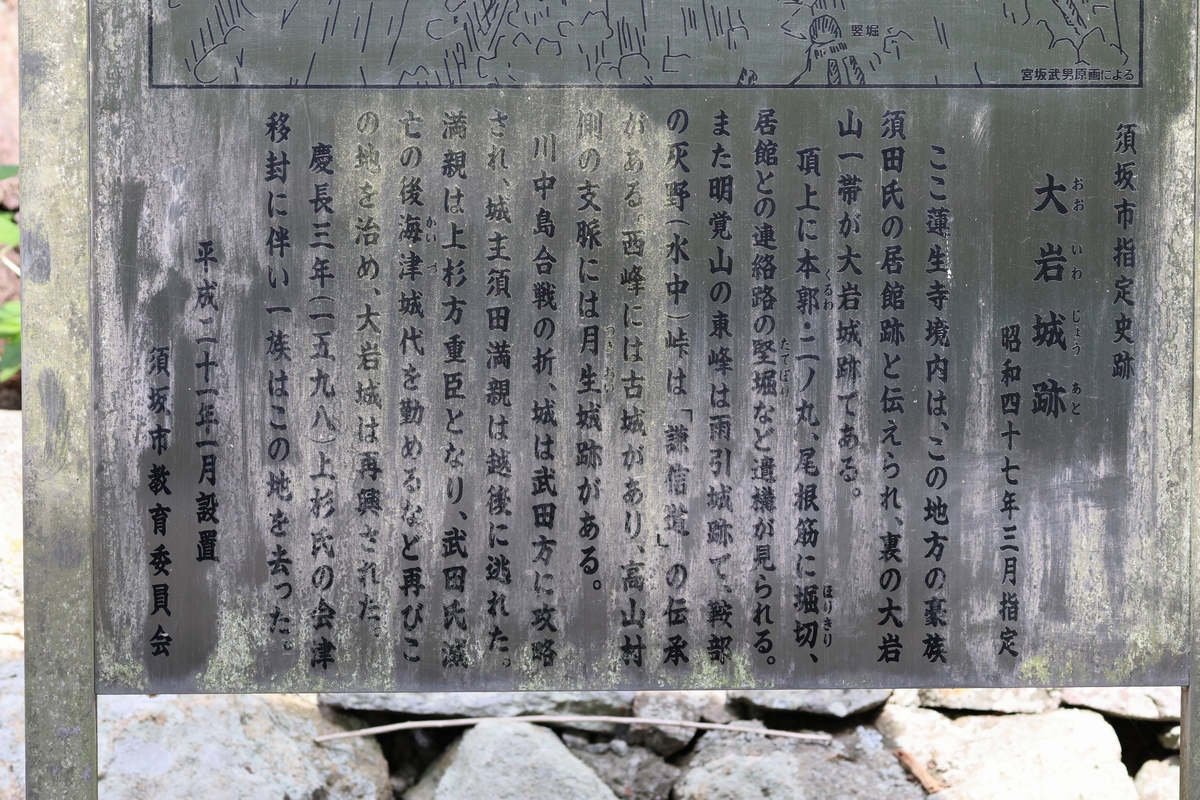 竪堀
宮坂武男原画による
須坂市指定史跡
大岩城跡
おおいわじょうあと
昭和四十七年三月指定
ここ蓮生寺境内は、この地方の豪族
須田氏の居館跡と伝えられ、裏の大岩
山一帯が大岩城跡である。
頂上に本郭・二ノ丸、尾根筋に堀切、
くるわ
ほりきり
居館との連絡路の竪堀など遺構が見られる。
たてぼり
また明覚山の東峰は雨引城跡で、鞍部
の灰野(水中)峠は「謙信道」の伝承
がある。西峰には古城があり、高山村
側の支脈には月生城跡がある。
つきおい
川中島合戦の折、城は武田方に攻略
され、城主須田満親は越後に逃れた。
満親は上杉方重臣となり、武田氏滅
亡の後海津城代を勤めるなど再びこ
かいづ
の地を治め、大岩城は再興された。
慶長三年(一五九八)上杉氏の会津
移封に伴い一族はこの地を去った。
平成二十一年一月設置
須坂市教育委員会